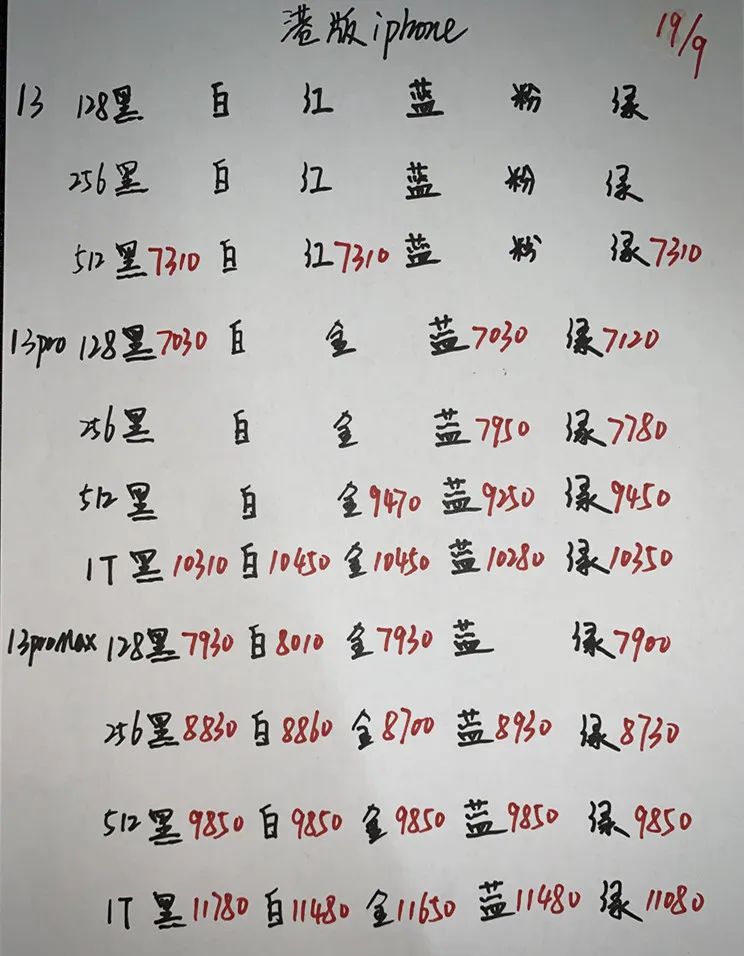 港版iphone 19/9
13 128黑 白 红 蓝 粉 绿
256黑 白 红 蓝 粉 绿
512黑7310 白 红7310 蓝 粉 绿7310
13pro 128黑7030 白 金 蓝7030 绿7120
256黑 白 金 蓝7950 绿7780
512黑 白 金9470 蓝9250 绿9450
1T黑10310 白10450 金10450 蓝10280 绿10350
13proMax 128黑7930 白8010 金7930 蓝 绿7900
256黑8830 白8860 金8700 蓝8930 绿8730
512黑9850 白9850 金9850 蓝9850 绿9850
1T黑11780 白11480 金11650 蓝11480 绿11080